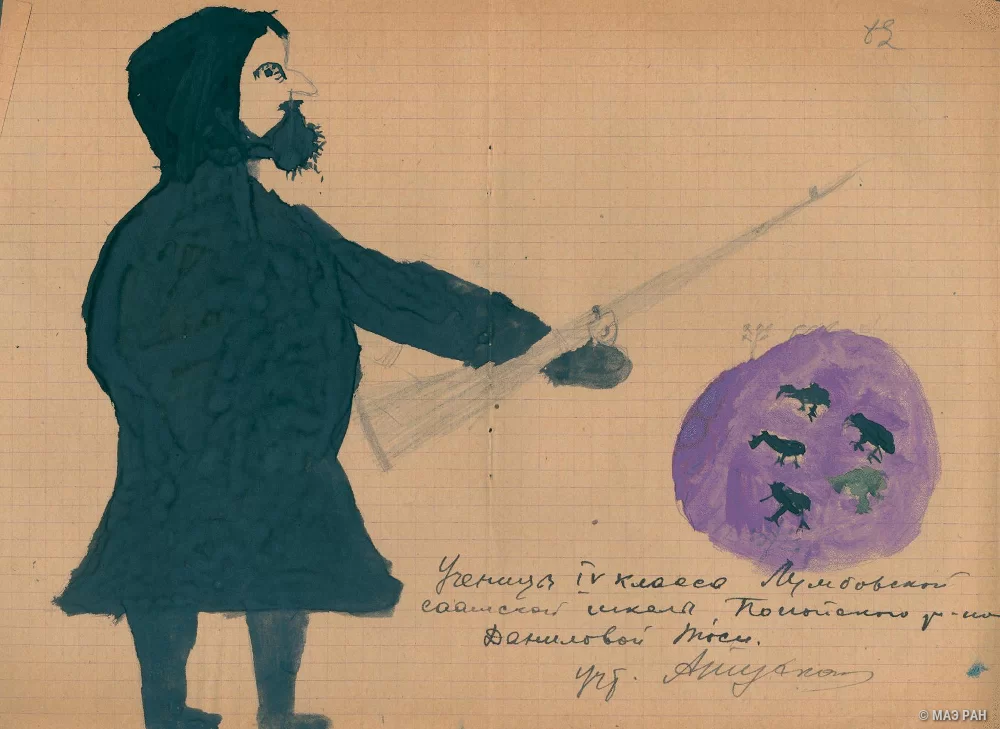 Ученицы IV класса Лумбовской
саамской школы, Понойского р-на
Даниловой Тоси.
Учт.
© МАЭ РАН